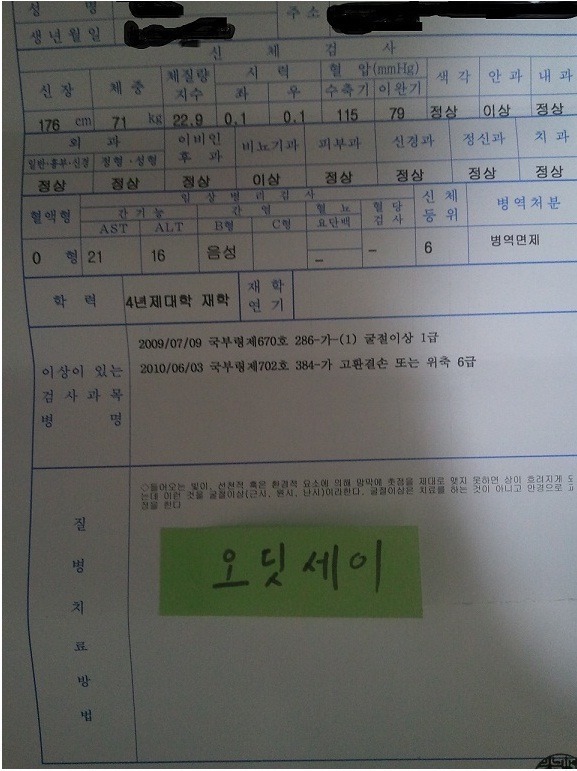 성 명
주 소
생년월일
신 체 검 사
신장 체중 체질량지수 시 력 좌 우 혈 압(mmHg) 수축기 이완기 색 각 안 과 내 과
176 cm 71 kg 22.9 0.1 0.1 115 79 정상 이상 정상
외 과 일반·흉부·신경 정형·성형 이비인후 과 비뇨기과 피부과 신경과 정신과 치 과
정상 정상 정상 이상 정상 정상 정상 정상
혈액형 임 상 병 리 검 사 신 체 등 위 병역처분
간 기 능 간 염 혈 뇨 혈 당
AST ALT B형 C형 요단백 검 사
O 형 21 16 음성 – – 6 병역면제
학 력 4년제대학 재학 재 학 연 기
2009/07/09 국부령제670호 286-가-(1) 굴절이상 1급
2010/06/03 국부령제702호 384-가 고환결손 또는 위축 6급
이상이 있는
검 사 과 목
병 명
◇들어오는 빛이, 선천적 혹은 환경적 요소에 의해 망막에 초점을 제대로 맺지 못하면 상이 흐려지게 되
는데 이런 것을 굴절이상(근시, 원시, 난시)이라한다. 굴절이상은 치료를 하는 것이 아니고 안경으로 교
정을 한다
질 병 치 료 방 법
오딧세이